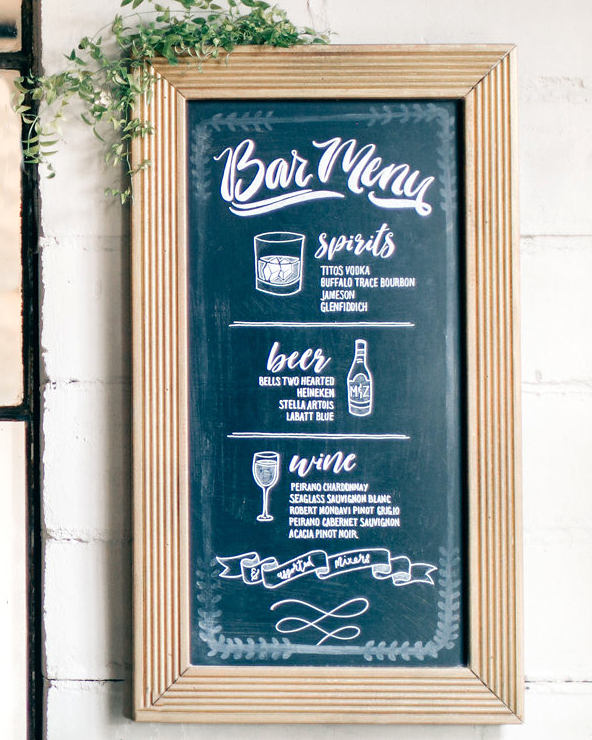 Bar Menu
spirits
TITOS VODKA
BUFFALO TRACE BOURBON
JAMESON
GLENFIDDICH
beer
BELLS TWO HEARTED
HEINEKEN
STELLA ARTOIS
LABATT BLUE
M&Z
wine
PEIRANO CHARDONNAY
SEAGLASS SAUVIGNON BLANC
ROBERT MONDAVI PINOT GRIGIO
PEIRANO CABERNET SAUVIGNON
ACACIA PINOT NOIR
& assorted mixers